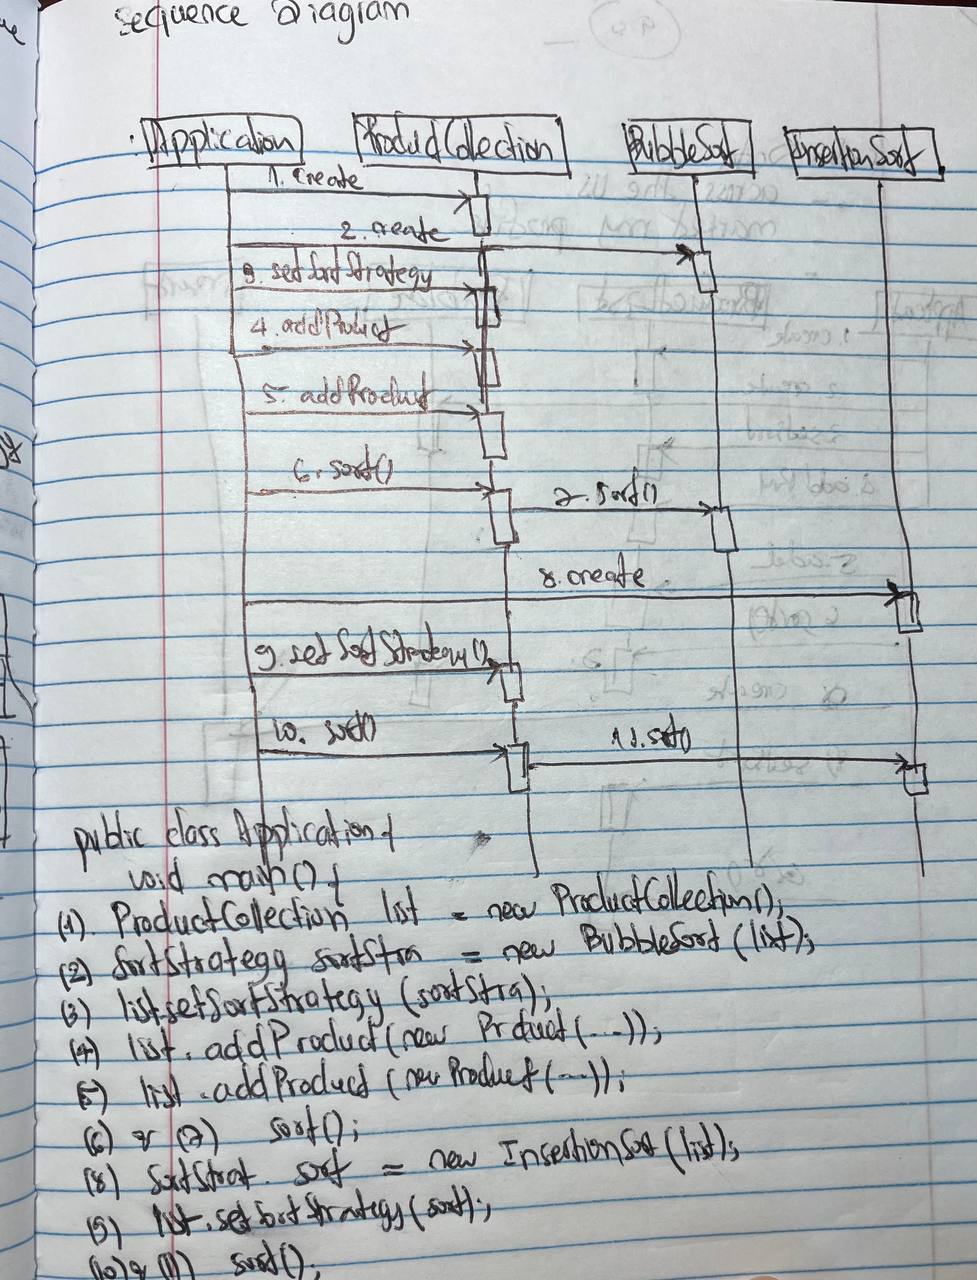 Sequence Diagram
Application ProductCollection BubbleSort InsertionSort
1. Create
2. create
3. setSortStrategy
4. addProduct
5. addProduct
6. sort()
7. sort()
8. create
9. setSortStrategy()
10. sort()
11. sort()
public class Application {
void main() {
(1). ProductCollection list = new ProductCollection();
(2) SortStrategy sortStra = new BubbleSort (list);
(3) list.setSortStrategy (sortStra);
(4) list.addProduct (new Prduct (---));
(5) list.addProduct (new Product (---));
(6) & (7) sort();
(8) SortStrat. sort = new InsertionSort (list);
(9) list.setSortStrategy (sort);
(10) & (11) sort();